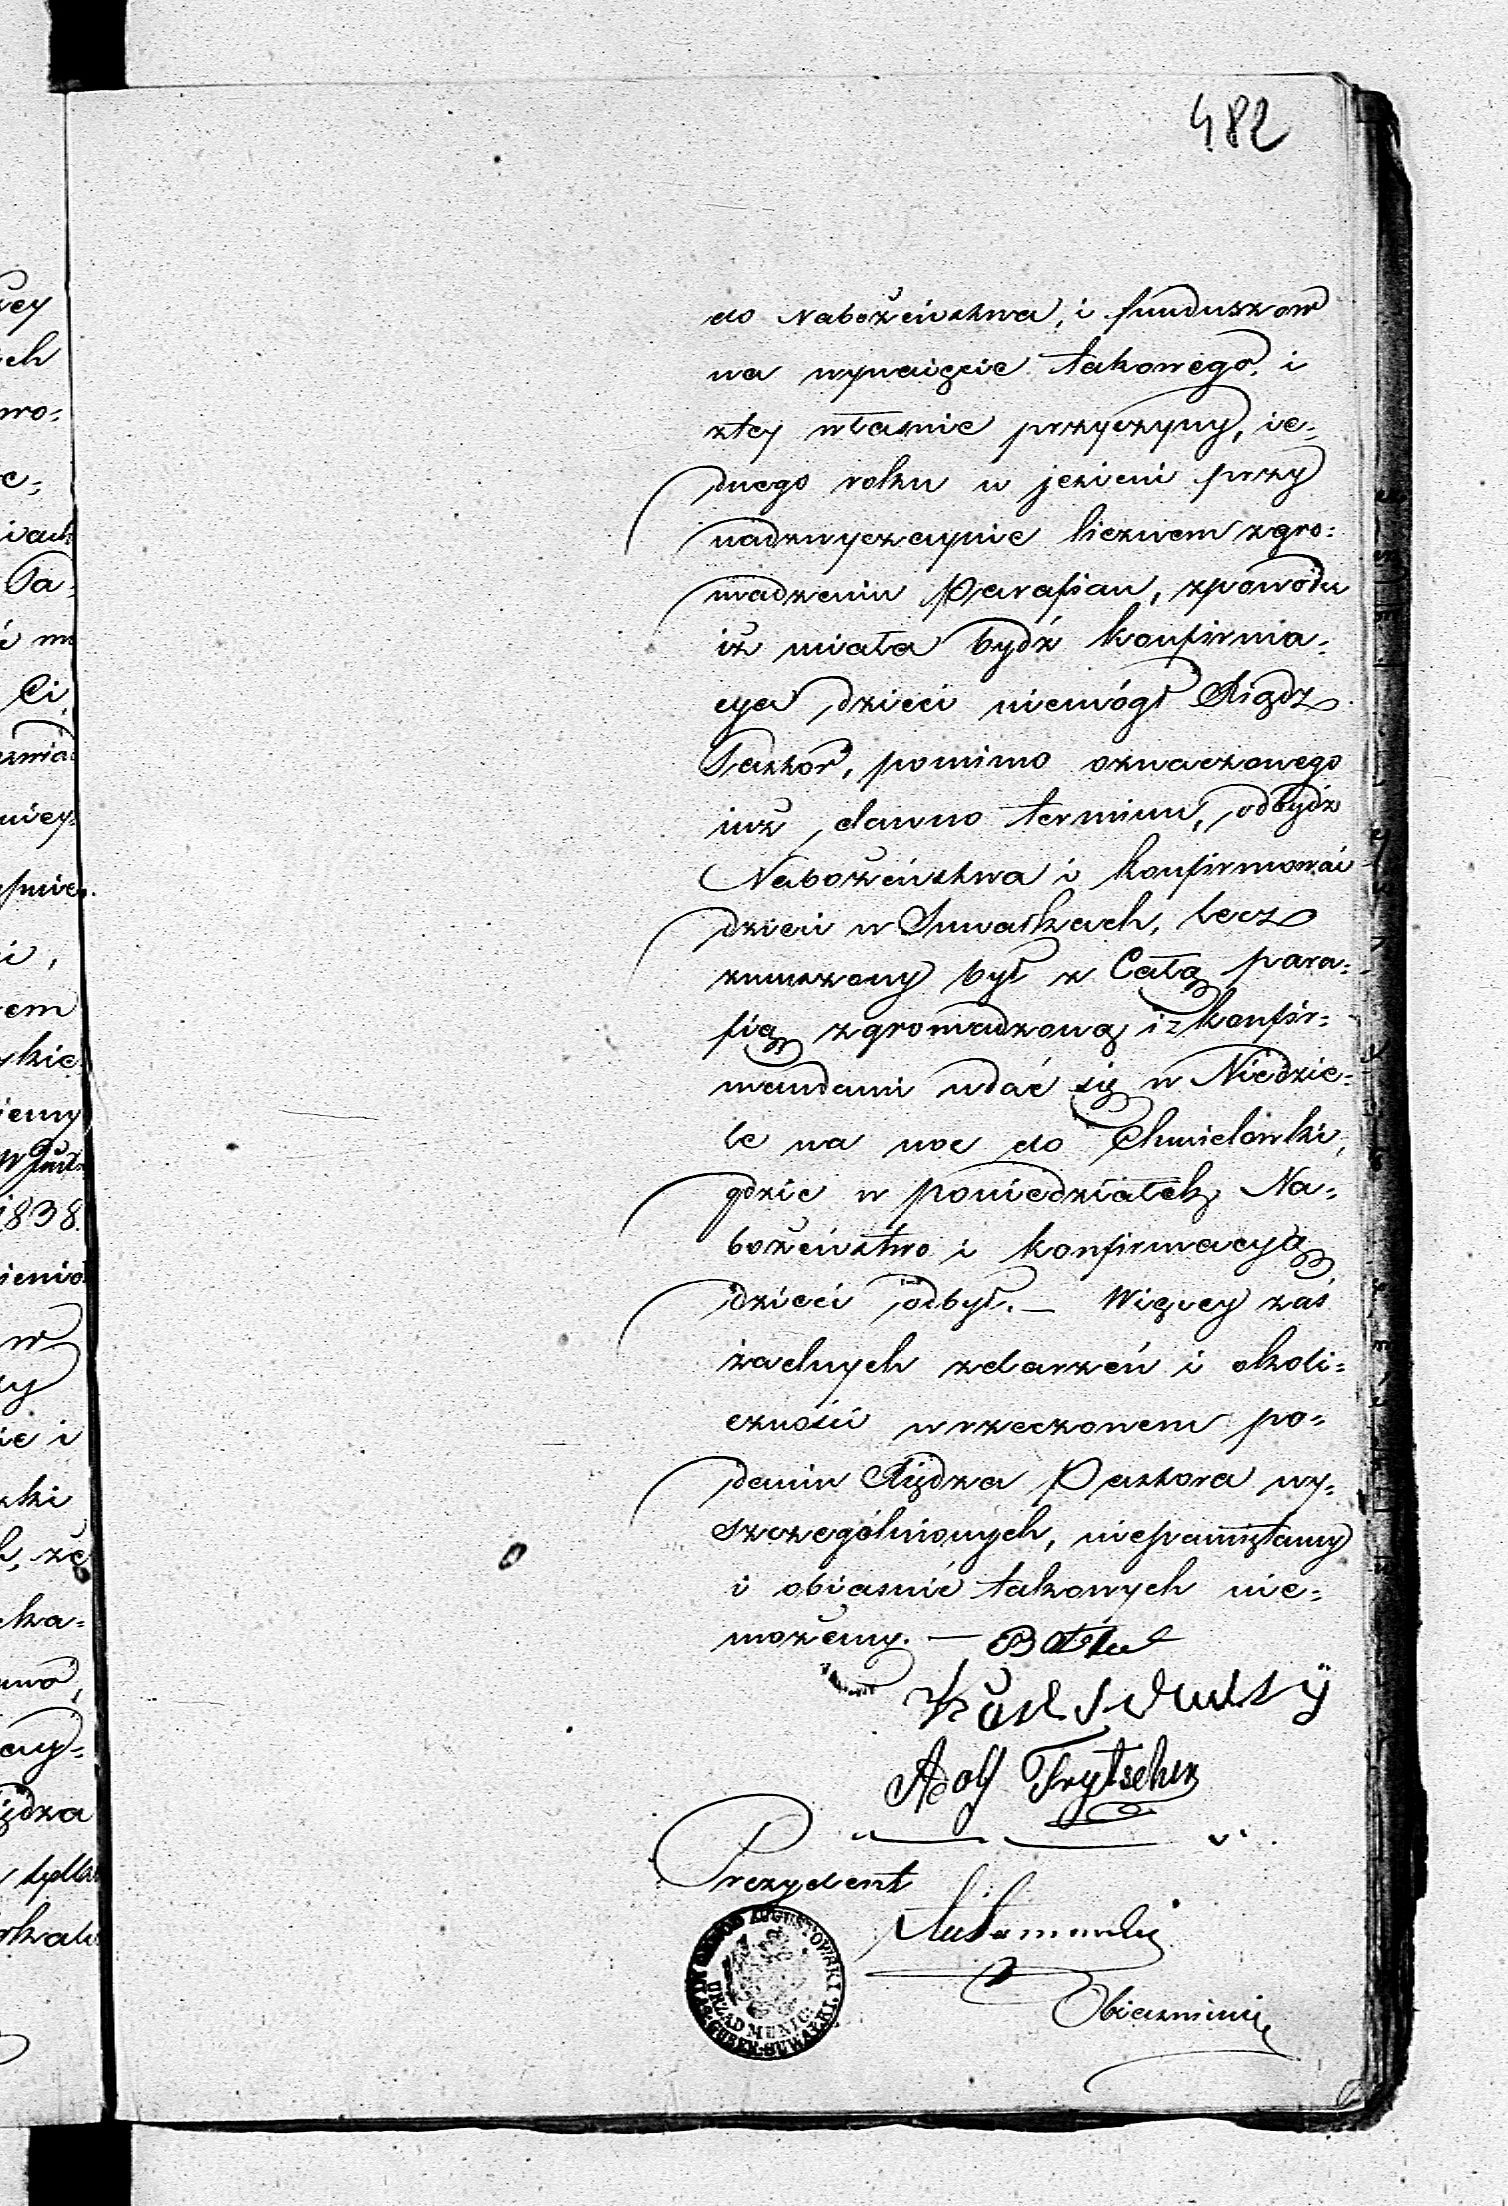 482
do Nabożeństwa, i funduszow
na wynaięcie takowego, i
ztey własnie przyczyny, ie-
dnego roku w jesieni przy
nadzwyczaynie licznem zgro-
madzeniu Parafian, zpowodu
iż miała bydź konfirma-
cya dzieci niemógł Xiądz
Pastor, pomimo oznaczonego
iuż dawno terminu, odbydź
Nabożeństwa i konfirmować
dzieci w Suwałkach, lecz
zmuszony był z Całą para-
fią zgromadzoną i z konfir-
mandami udać się w Niedzie-
lę na noc do Chmielowki,
gdzie w poniedziałek Na-
bożeństwo i konfirmacyą
dzieci odbył. — Więcey zaś
żadnych zdarzeń i okoli-
czności w rzeczonem po-
daniu Xiędza Pastora wy-
szczególnionych, niepamiętamy
i obiasnić takowych nie-
możemy. —
Adolf Frytscher
Prezydent
Obiasnienie
URZAD MUNIC:
rey
ch
wo-
e-
iach
Pa-
Ci
niey-
i,
em
kie
iemy
1838.
w
zy
ie i
zki
że
ka-
ędza
tylko